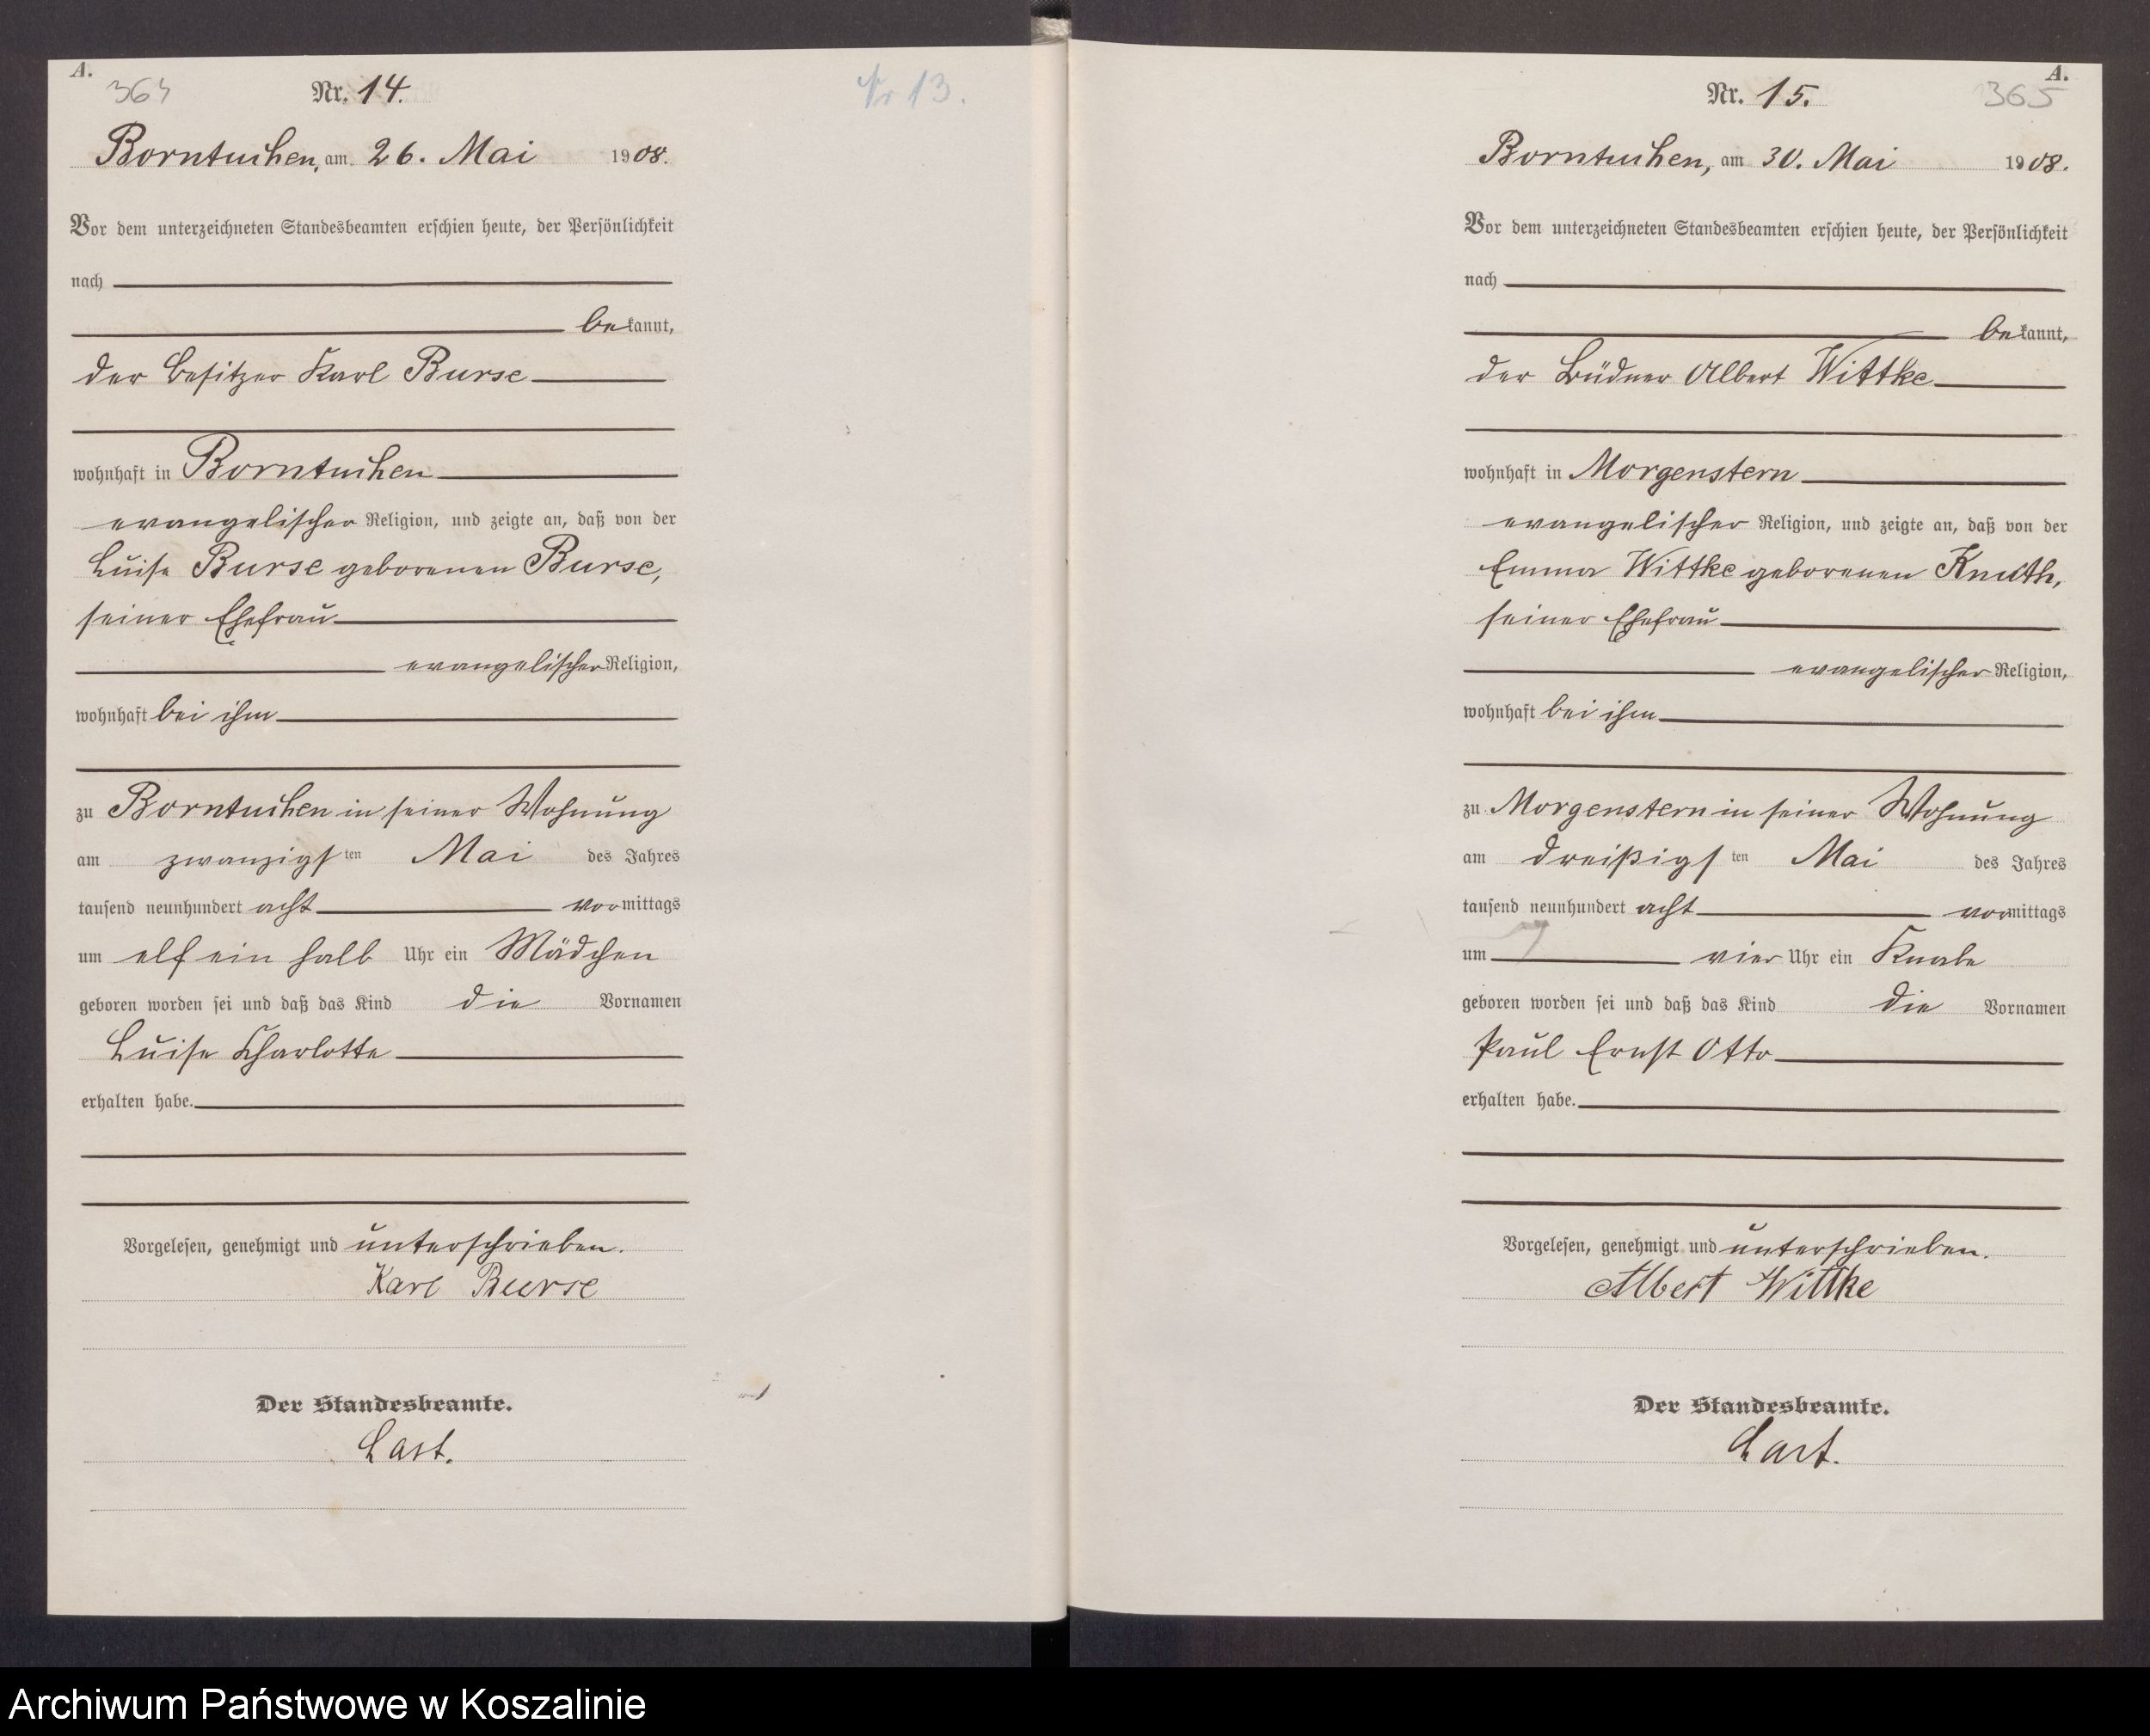 A.
364
Nr. 14.
Nr 13.
Borntuchen, am 26. Mai 1908.
Vor dem unterzeichneten Standesbeamten erschien heute, der Persönlichkeit
nach
bekannt,
der Besitzer Karl Burse
wohnhaft in Borntuchen
evangelischer Religion, und zeigte an, daß von der
Luise Burse geborenen Burse,
seiner Ehefrau
evangelischer Religion,
wohnhaft bei ihm
zu Borntuchen in seiner Wohnung
am zwanzigsten Mai des Jahres
tausend neunhundert acht vormittags
um elf ein halb Uhr ein Mädchen
geboren worden sei und daß das Kind die Vornamen
Luise Charlotte
erhalten habe.
Vorgelesen, genehmigt und unterschrieben.
Karl Burse
Der Standesbeamte.
Last.
A.
365
Nr. 15.
Borntuchen, am 30. Mai 1908.
Vor dem unterzeichneten Standesbeamten erschien heute, der Persönlichkeit
nach
bekannt,
der Büdner Albert Wittke
wohnhaft in Morgenstern
evangelischer Religion, und zeigte an, daß von der
Emma Wittke geborenen Knuth,
seiner Ehefrau
evangelischer Religion,
wohnhaft bei ihm
zu Morgenstern in seiner Wohnung
am dreißigsten Mai des Jahres
tausend neunhundert acht vormittags
um vier Uhr ein Knabe
geboren worden sei und daß das Kind die Vornamen
Paul Ernst Otto
erhalten habe.
Vorgelesen, genehmigt und unterschrieben.
Albert Wittke
Der Standesbeamte.
Last.
Archiwum Państwowe w Koszalinie